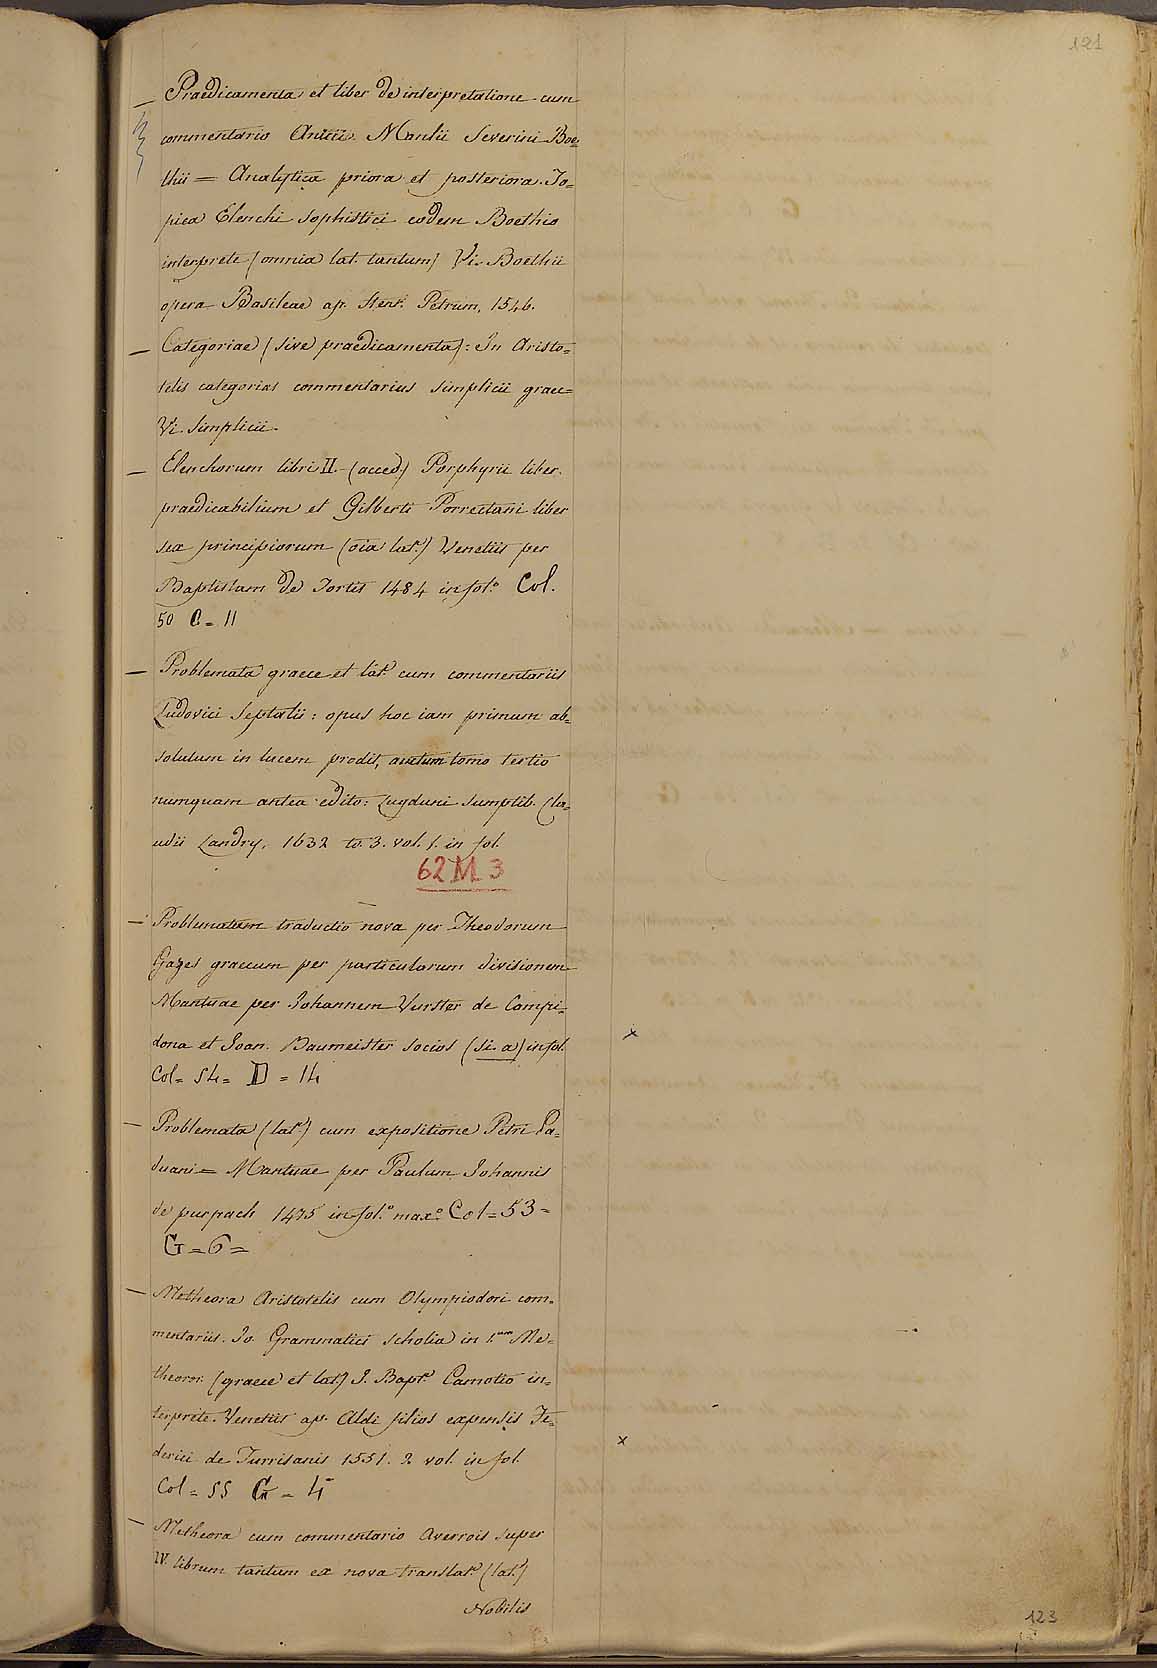 121
— Praedicamenta et liber de interpretatione cum
commentario Anicii Manlii Severini Boe=
thii = Analytica priora et posteriora. To=
pica Elenchi sophistici eodem Boethio
interprete (omnia lat. tantum) Vi. Boethii
opera Basileae ap. Henr. Petrum, 1546.
— Categoriae (sive praedicamenta): In Aristo=
telis categorias commentarius Simplicii graec=
Vi. Simplicii.
— Elenchorum libri II. (acced.) Porphyrii liber
praedicabilium et Gilberti Porrectani liber
sex principiorum (oia lat.e) Venetiis per
Baptistam de Tortis 1484 in fol.o Col.
50 C = 11
— Problemata graece et lat.e cum commentariis
Ludovici Septalii: opus hoc iam primum ab=
solutum in lucem prodit, auctum tomo tertio
numquam antea edito: Lugduni sumptib. Cla=
udii Landry, 1632 to. 3. vol. 1. in fol.
62 M 3
— Problematum traductio nova per Theodorum
Gazes graecum per particularum divisionem
Mantuae per Johannem Vurster de Campi=
dona et Joan. Baumeister socios (si. a) in fol. x
Col = 54 = D = 14
— Problemata (lat.e) cum expositione Petri Pa=
duani = Mantuae per Paulum Johannis
de purpach 1475 in fol.o max.o Col = 53 =
G = 6 =
— Metheora Aristotelis cum Olympiodori com=
mentariis. Jo. Grammatici scholia in 1.um Me=
theoror. (graece et lat.e) J. Bapt.a Camotio in=
terprete. Venetiis ap. Aldi filios expensis Fe=
derici de Turrisanis 1551. 2 vol. in fol. x
Col = 55 G = 4
— Metheora cum commentario Averrois super
IV. librum tantum ex nova translat.e (lat.e)
Nobilis
123